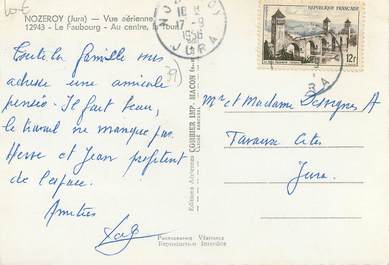 10 €
NOZEROY (Jura) — Vue aérienne
12943 - Le Faubourg - Au centre, la Tour
NOZEROY
17-9
1956
JURA
12F
Toute la famille vous
adresse une amicale
pensée. Il fait beau,
le travail ne manque pas
Herve et Jean profitent
de l'espace.
Amitiés
39
Editions Aériennes COMBIER IMP. MACON
Mr et Madame Desvignes A
Tavaux Cites
Jura.
Photographie Véritable
Reproduction Interdite